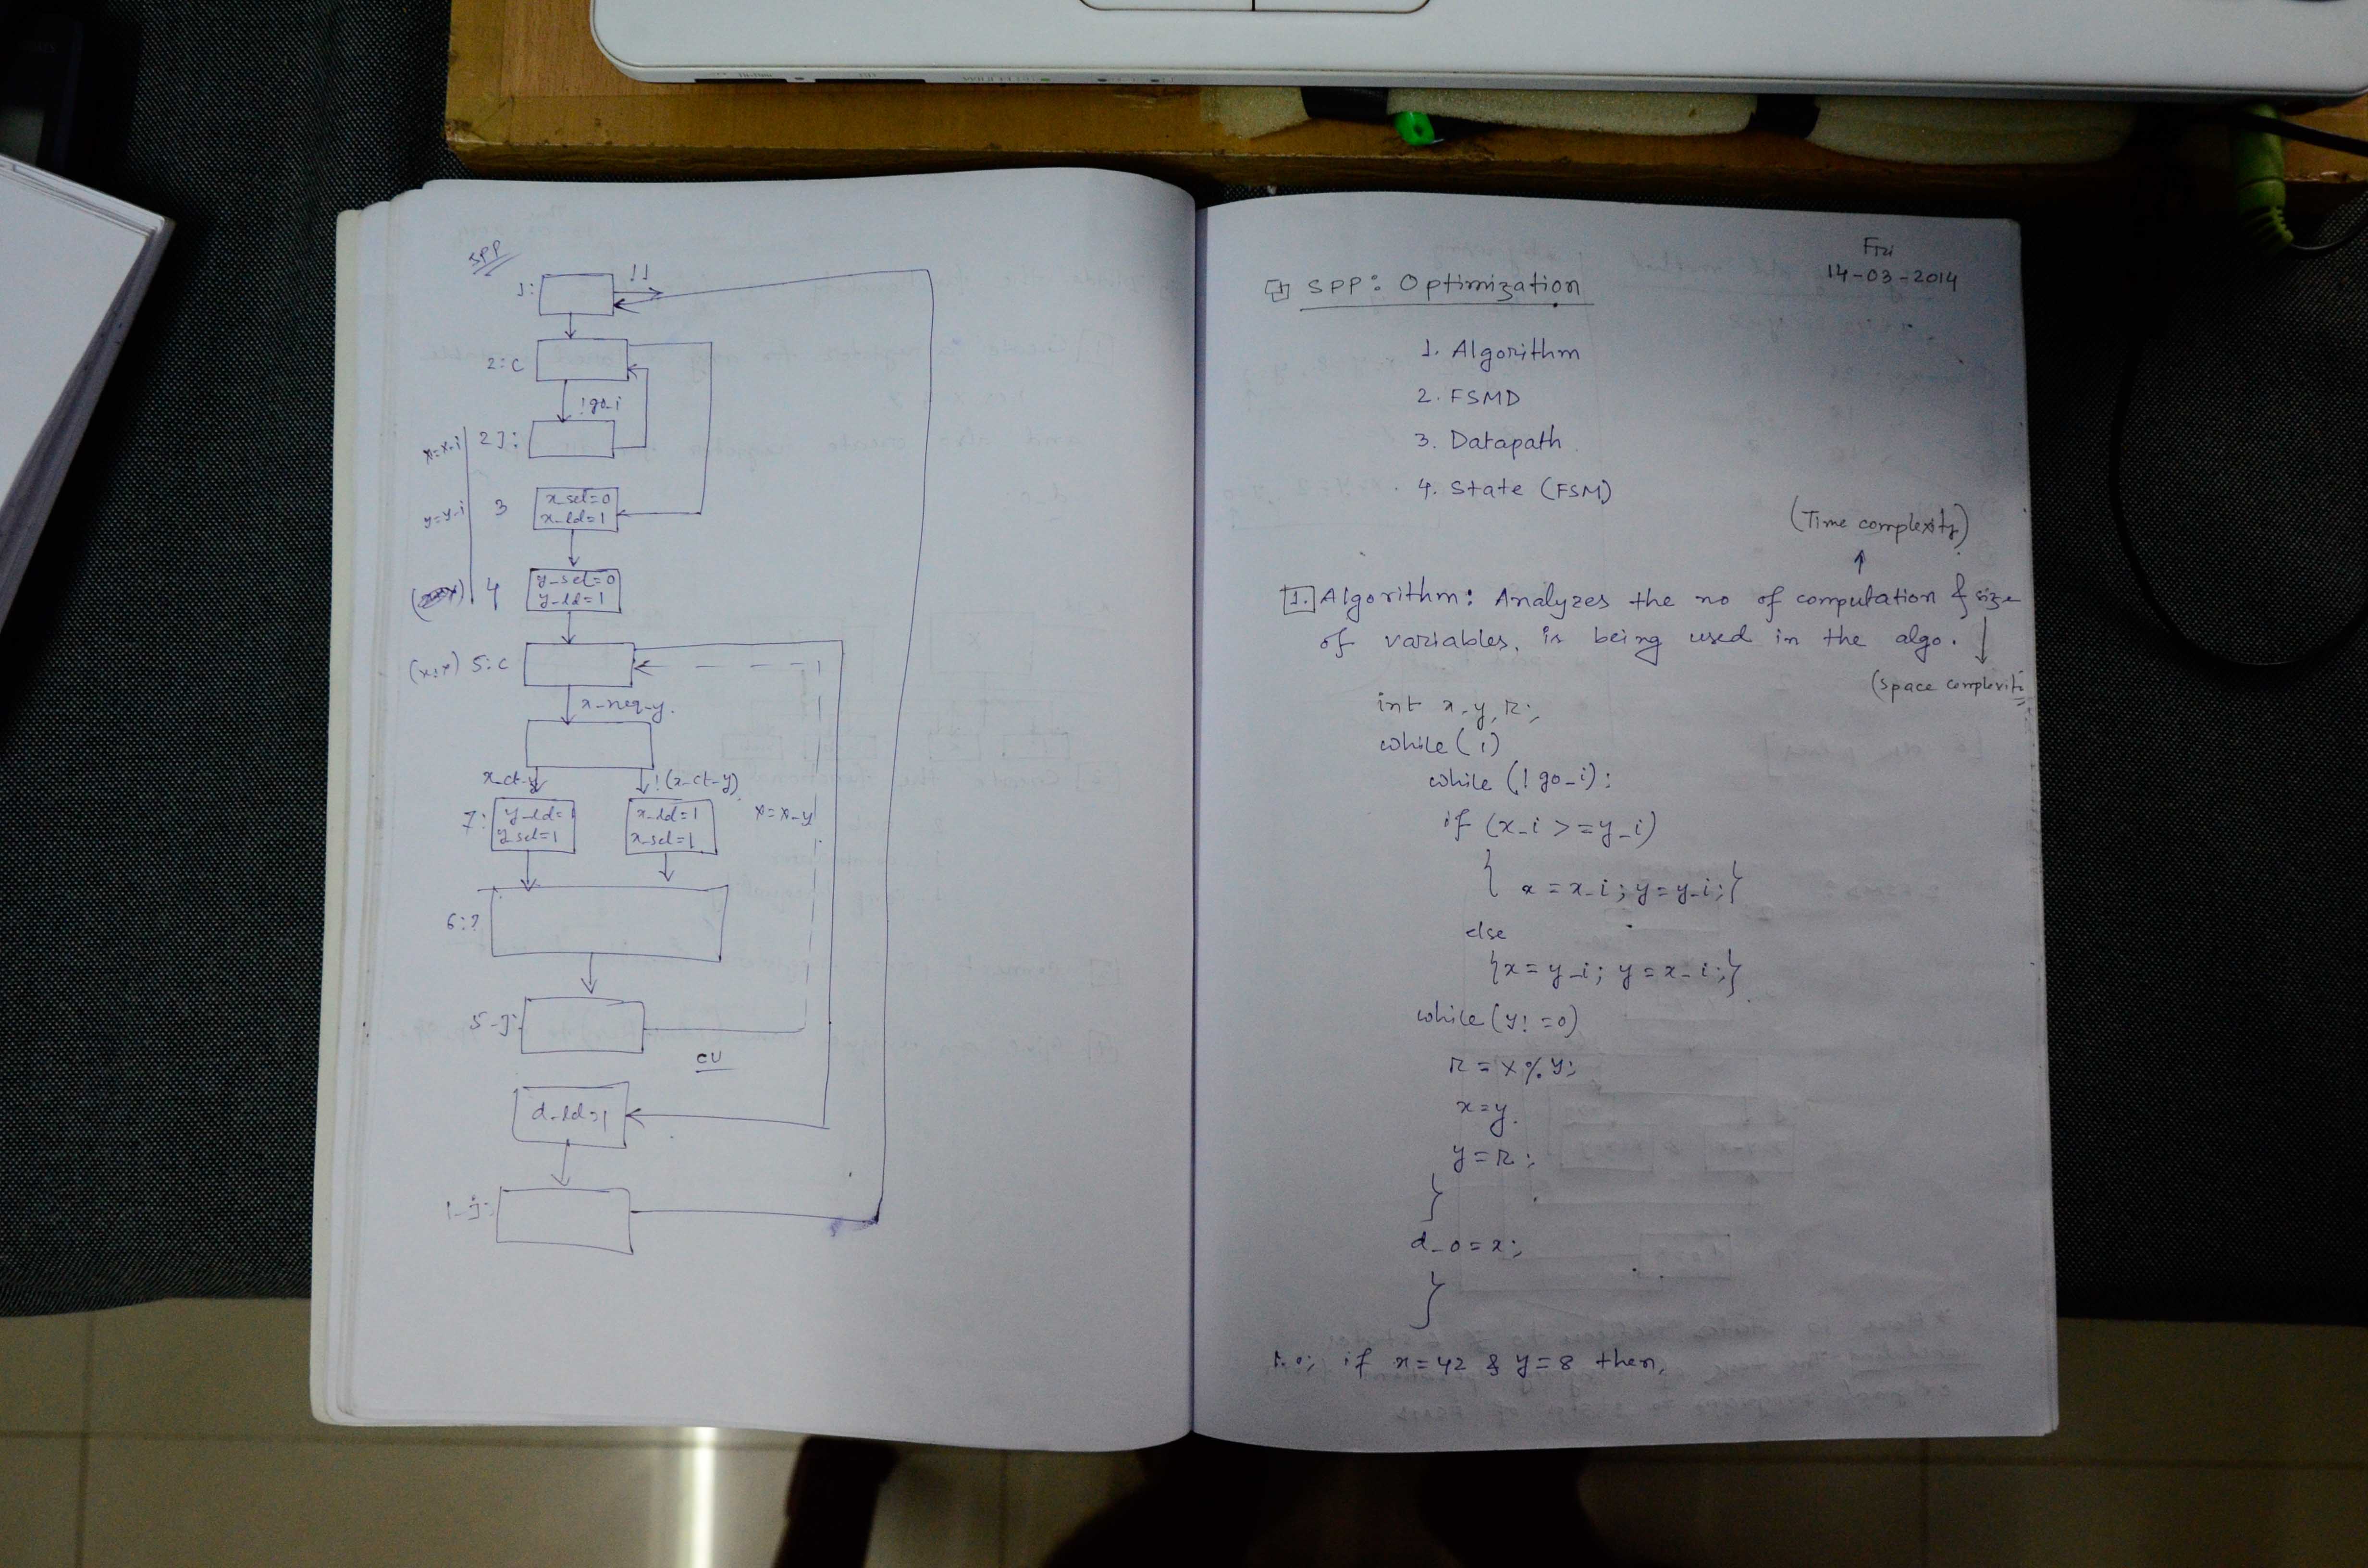 SPP
1:
!1
2:C
!go-i
x=x-i
2J:
y=y-i
3
x_sel=0
x-ld=1
4
y-sel=0
y-ld=1
5:C
x-neq-y.
x_ct-y
!(x_ct-y)
7:
y-ld=1
y_sel=1
x-ld=1
x_sel=1
x=x-y
6:?
5-J:
CU
d-ld=1
1-J:
Fri
14-03-2014
SPP: Optimization
1. Algorithm
2. FSMD
3. Datapath.
4. State (FSM)
(Time complexity)
1. Algorithm: Analyzes the no of computation & size
of variables, is being used in the algo.
(space complexit
int x,y,r;
while(1)
while (!go-i):
if (x-i >=y-i)
{ x = x-i; y=y-i;}
else
{x=y-i; y=x-i;}
while(y!=0)
r = x%y;
x=y.
y=r;
}
d-o=x;
}
if x=42 & y=8 then,